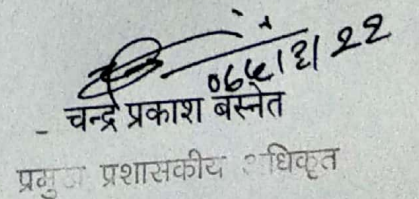 चन्द्र प्रकाश बस्नेत
प्रमुख प्रशासकीय अधिकृत